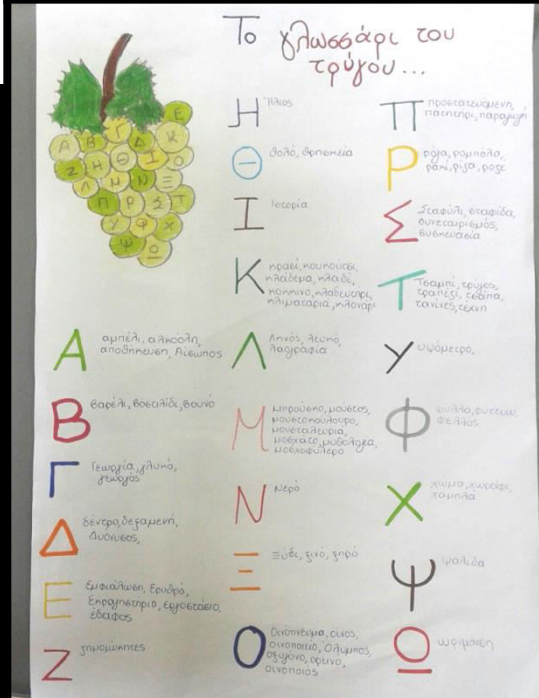 Το γλωσσάρι του
τρύγου...
Ε
Α Β Γ Δ Κ
Ζ Η Θ Ι Ο
Λ Μ Ν Ξ
Π Ρ Σ Τ
Υ Φ Χ
Ψ Ω
Α αμπέλι, αλκοόλη,
αποθήκευση, Αίσωπος
Β βαρέλι, βασιλιάς, βουνό
Γ Γεωργία, γλυκό,
γεωργός
Δ δέντρο, δεξαμενή,
Διόνυσος,
Ε Εμφιάλωση, Ερυθρό,
Εκραγιστήριο, εργοστάσιο,
έδαφος
Ζ ζημομύκητες
Η Ήλιος
Θ θολό, θρησκεία
Ι Ιστορία
Κ κρασί, κουκούτσι,
κλάδεμα, κλαδί,
κόκκινο, κλαδευτήρι,
κληματαριά, κλονάρι
Λ Ληνός, λευκό,
λαογραφία
Μ μπρούσκο, μούστος,
μουστοκούλουρο,
μουσταλευριά,
μοσχάτο, μυθολογία,
μοσχοφίλερο
Ν Νερό
Ξ Ξύδι, ξινό, ξηρό
Ο Οινόπνευμα, οίνος,
οινοποιείο, Όλυμπος,
οξυγόνο, ορεινό,
οινοποιός
Π προστατευόμενη,
πατητήρι, παραγωγή
Ρ ρόγα, ρομπόλα,
ρακί, ρίζα, ροζέ
Σ Σταφύλι, σταφίδα,
συνεταιρισμός,
συσκευασία
Τ Τσαμπί, τρύγος,
τραπέζι, τσάπα,
τανίνες, τέχνη
Υ υψόμετρο,
Φ φύλλα, φυτεύω,
φελλός
Χ χώμα, χωράφι,
χαμηλά
Ψ ψαλίδα
Ω ωρίμανση